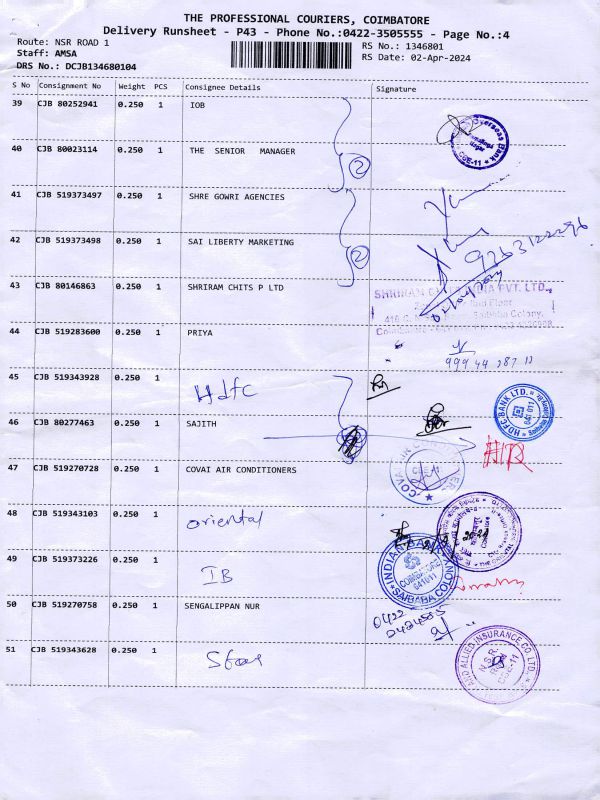 THE PROFESSIONAL COURIERS, COIMBATORE
Delivery Runsheet - P43 - Phone No.:0422-3505555 - Page No.:4
Route: NSR ROAD 1
RS No.: 1346801
Staff: AMSA
RS Date: 02-Apr-2024
DRS No.: DCJB134680104
S No Consignment No Weight PCS Consignee Details Signature
39 CJB 80252941 0.250 1 IOB
40 CJB 80023114 0.250 1 THE SENIOR MANAGER
2
41 CJB 519373497 0.250 1 SHRE GOWRI AGENCIES
42 CJB 519373498 0.250 1 SAI LIBERTY MARKETING
2
43 CJB 80146863 0.250 1 SHRIRAM CHITS P LTD
SHRIRAM PVT. LTD.,
Floor
Saibaba Colony,
44 CJB 519283600 0.250 1 PRIYA
45 CJB 519343928 0.250 1 Hdfc
HDFC BANK LTD.
641 011
46 CJB 80277463 0.250 1 SAJITH
47 CJB 519270728 0.250 1 COVAI AIR CONDITIONERS
48 CJB 519343103 0.250 1 oriental
49 CJB 519373226 0.250 1 IB
INDIAN BANK
COIMBATORE
641011
SAIBABA COLONY
50 CJB 519270758 0.250 1 SENGALIPPAN NUR
0422
51 CJB 519343628 0.250 1 Star
AND ALLIED INSURANCE CO. LTD.
N.S.R.
CBE-11